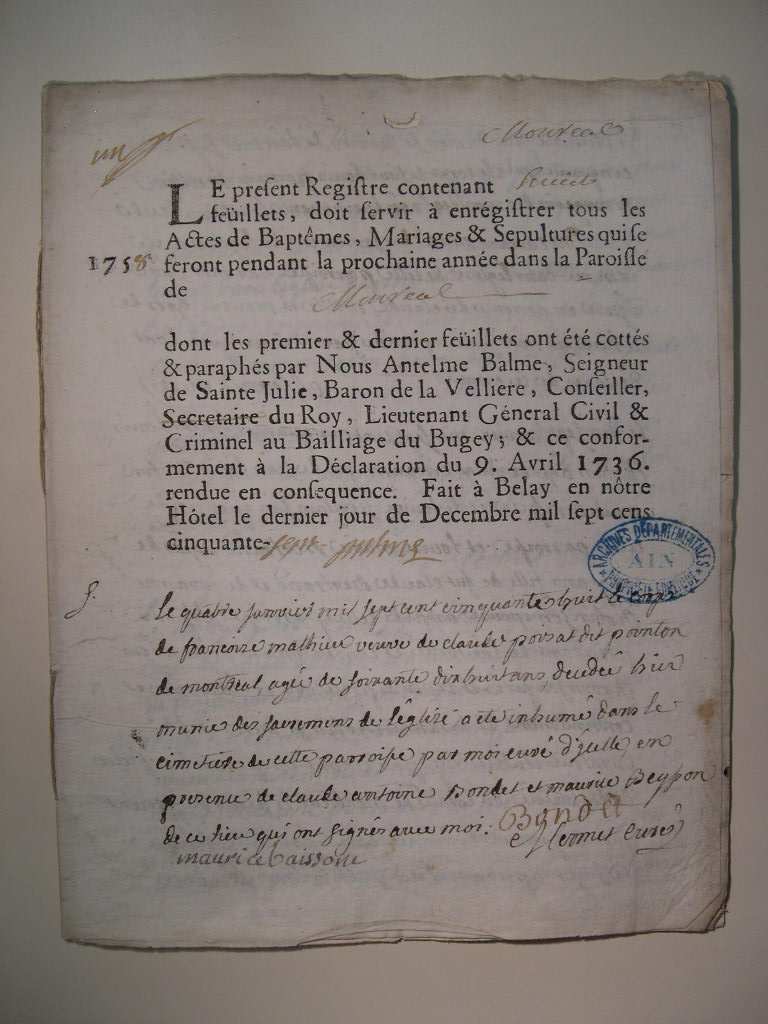 Monreal
LE preſent Regiſtre contenant huict
feüillets, doit ſervir à enrégiſtrer tous les
Actes de Baptêmes, Mariages & Sepultures qui ſe
1758 feront pendant la prochaine année dans la Paroiſſe
de Monreal
dont les premier & dernier feüillets ont été cottés
& paraphés par Nous Antelme Balme, Seigneur
de Sainte Julie, Baron de la Velliere, Conſeiller,
Secretaire du Roy, Lieutenant Géneral Civil &
Criminel au Bailliage du Bugey; & ce confor-
mement à la Déclaration du 9. Avril 1736.
rendue en conſequence. Fait à Belay en nôtre
Hôtel le dernier jour de Decembre mil ſept cens
cinquante-sept
ARCHIVES DÉPARTEMENTALES
AIN
PROPRIÉTÉ PUBLIQUE
S.
Le quatre janvier mil sept cent cinquante huit le corps
de francoise mathieu veuve de claude poisat dit pointon
de montreal, agée de soixante dix huit ans, decedée hier
munie des sacremens de l'église, a été inhumé dans le
cimetiere de cette parroisse par moi curé d'icelle, en
presence de claude antoine Bondet et maurice Beysson
de ce lieu qui ont signés avec moi. Bondet
maurice baissone Mermet curé